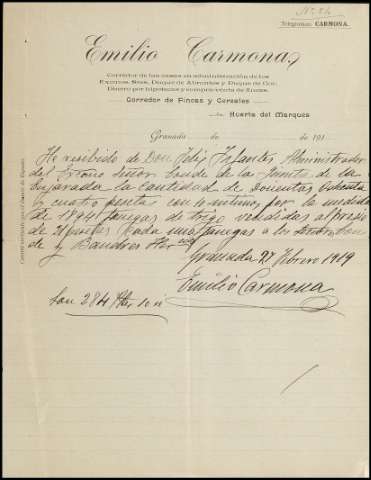 Nº 84
Telegramas: CARMONA.
Emilio Carmona
Corredor de las casas en administración de los
Excmos. Sres. Duque de Abrantes y Duque de Gor.
Dinero por hipotecas y compra-venta de fincas.
Corredor de Fincas y Cereales
Huerta del Marqués
Granada de de 191
He recibido de Don Felix Infantes Administrador
del Excmo Señor Conde de la de la
la cantidad de Doscientas Ochenta
y cuatro pesetas con por la medida
de 1894 fanegas de trigo vendidas al precio
de pesetas cada una fanegas a los
de y Bandres Her
Granada 27 Febrero 1919
Emilio Carmona
Son 284 Ptas